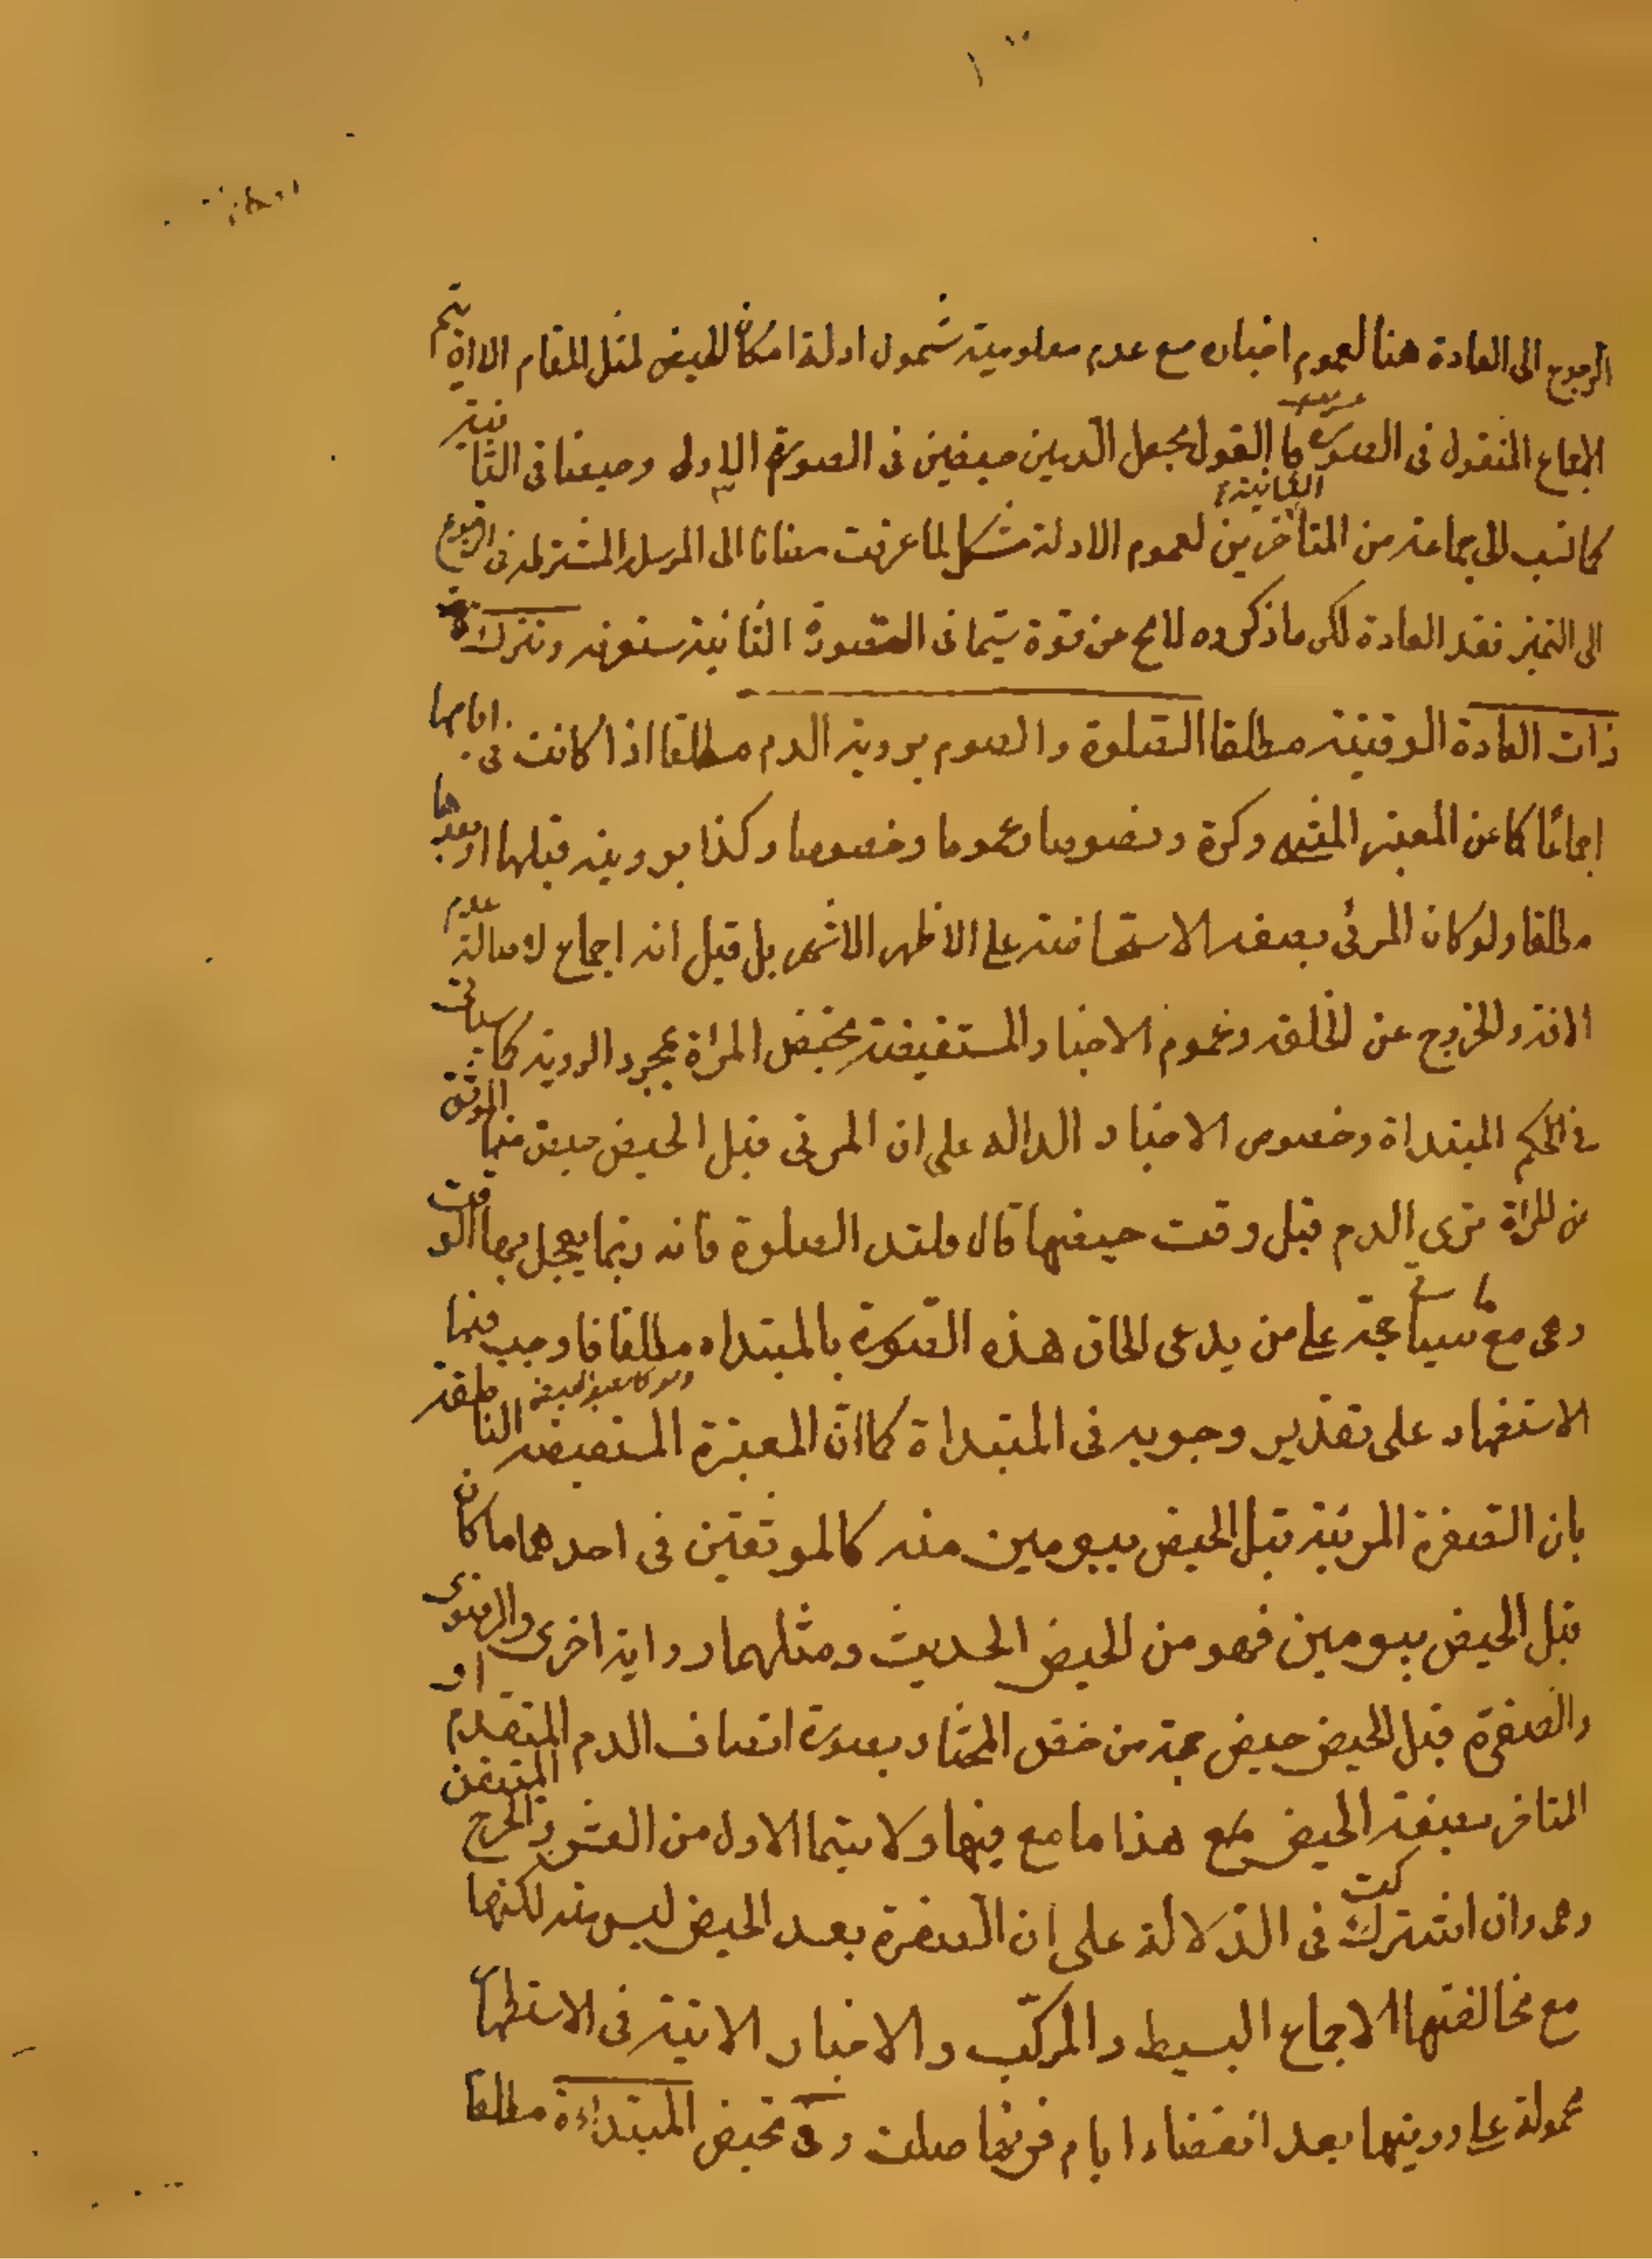 الرجوع الى العادة هنا لعموم اخباره مع عدم معلومية شمول ادلة امكان الحيض لمثل المقام الا ان يتم
الاجماع المنقول فى الصورة كما القول بجعل الدمين حيضين فى الصورة الاولى وحيضا فى الثانية
الثانية
كما نسب الى جماعة من المتاخرين لعموم الادلة مشكل لما عرفت مضافا الى المرسل المشترط فى الرجوع
الى التميز فقد العادة لكن ما ذكروه لا يخ عن قوة سيما فى الصورة الثانية ستعرفه وتترك
ذات العادة الوقتية مطلقا الصلوة والصوم برؤية الدم مطلقا اذا كانت فى ايامها
اجماعا كما عن المعتبر المنتهى وكرة ونصوصا عموما وخصوصا وكذا برؤيته قبلها او بعدها
مطلقا ولو كان المرئى بصفة الاستحاضة على الاظهر الاشهر بل قيل انه اجماع لاصالة عدم
الافة والخروج عن الخلقة وعموم الاخبار المستفيضة بتحيض المراة بمجرد الرؤية كما سياتى
فى الحكم المبتداة وخصوص الاخبار الدالة على ان المرئى قبل الحيض حيض منها الموثق
عن المراة ترى الدم قبل وقت حيضها قال فلتدع الصلوة فانه ربما يعجل بها الوقت
وهى مع ما سياتى حجة على من يدعى الحاق هذه الصورة بالمبتداه مطلقا فاوجب فيها
الاستظهار على تقدير وجوبه فى المبتداة كما ان المعتبرة المستفيضة الناطقة
بان الصفرة المرئية قبل الحيض بيومين منه كالموثقين فى احدهما ما كان
قبل الحيض بيومين فهو من الحيض الحديث ومثلهما رواية اخرى والرضوى
والصفرة قبل الحيض حيض حجة من خص المختار بصورة اتصاف الدم المتقدم او
المتاخر بصفة الحيض مع هذا ما مع فيها ولا سيما الاول من العسر والحرج المنتفين
وهى وان اشتركت فى الدلالة على ان الصفرة بعد الحيض ليس منه لكنها
مع مخالفتها الاجماع البسيط والمركب والاخبار الاتية فى الاستظهار
محمولة على رؤيتها بعد انقضاء ايام فرضها صلت وفى تحيض المبتداءة مطلقا